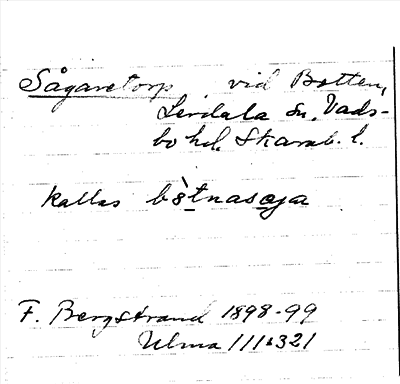 Sågaretorp vid Botten,
Lerdala sn, Vads-
bo hd, Skarab. l.
kallas bòtnasaga
F. Bergstrand 1898-99
Ulma 111:321